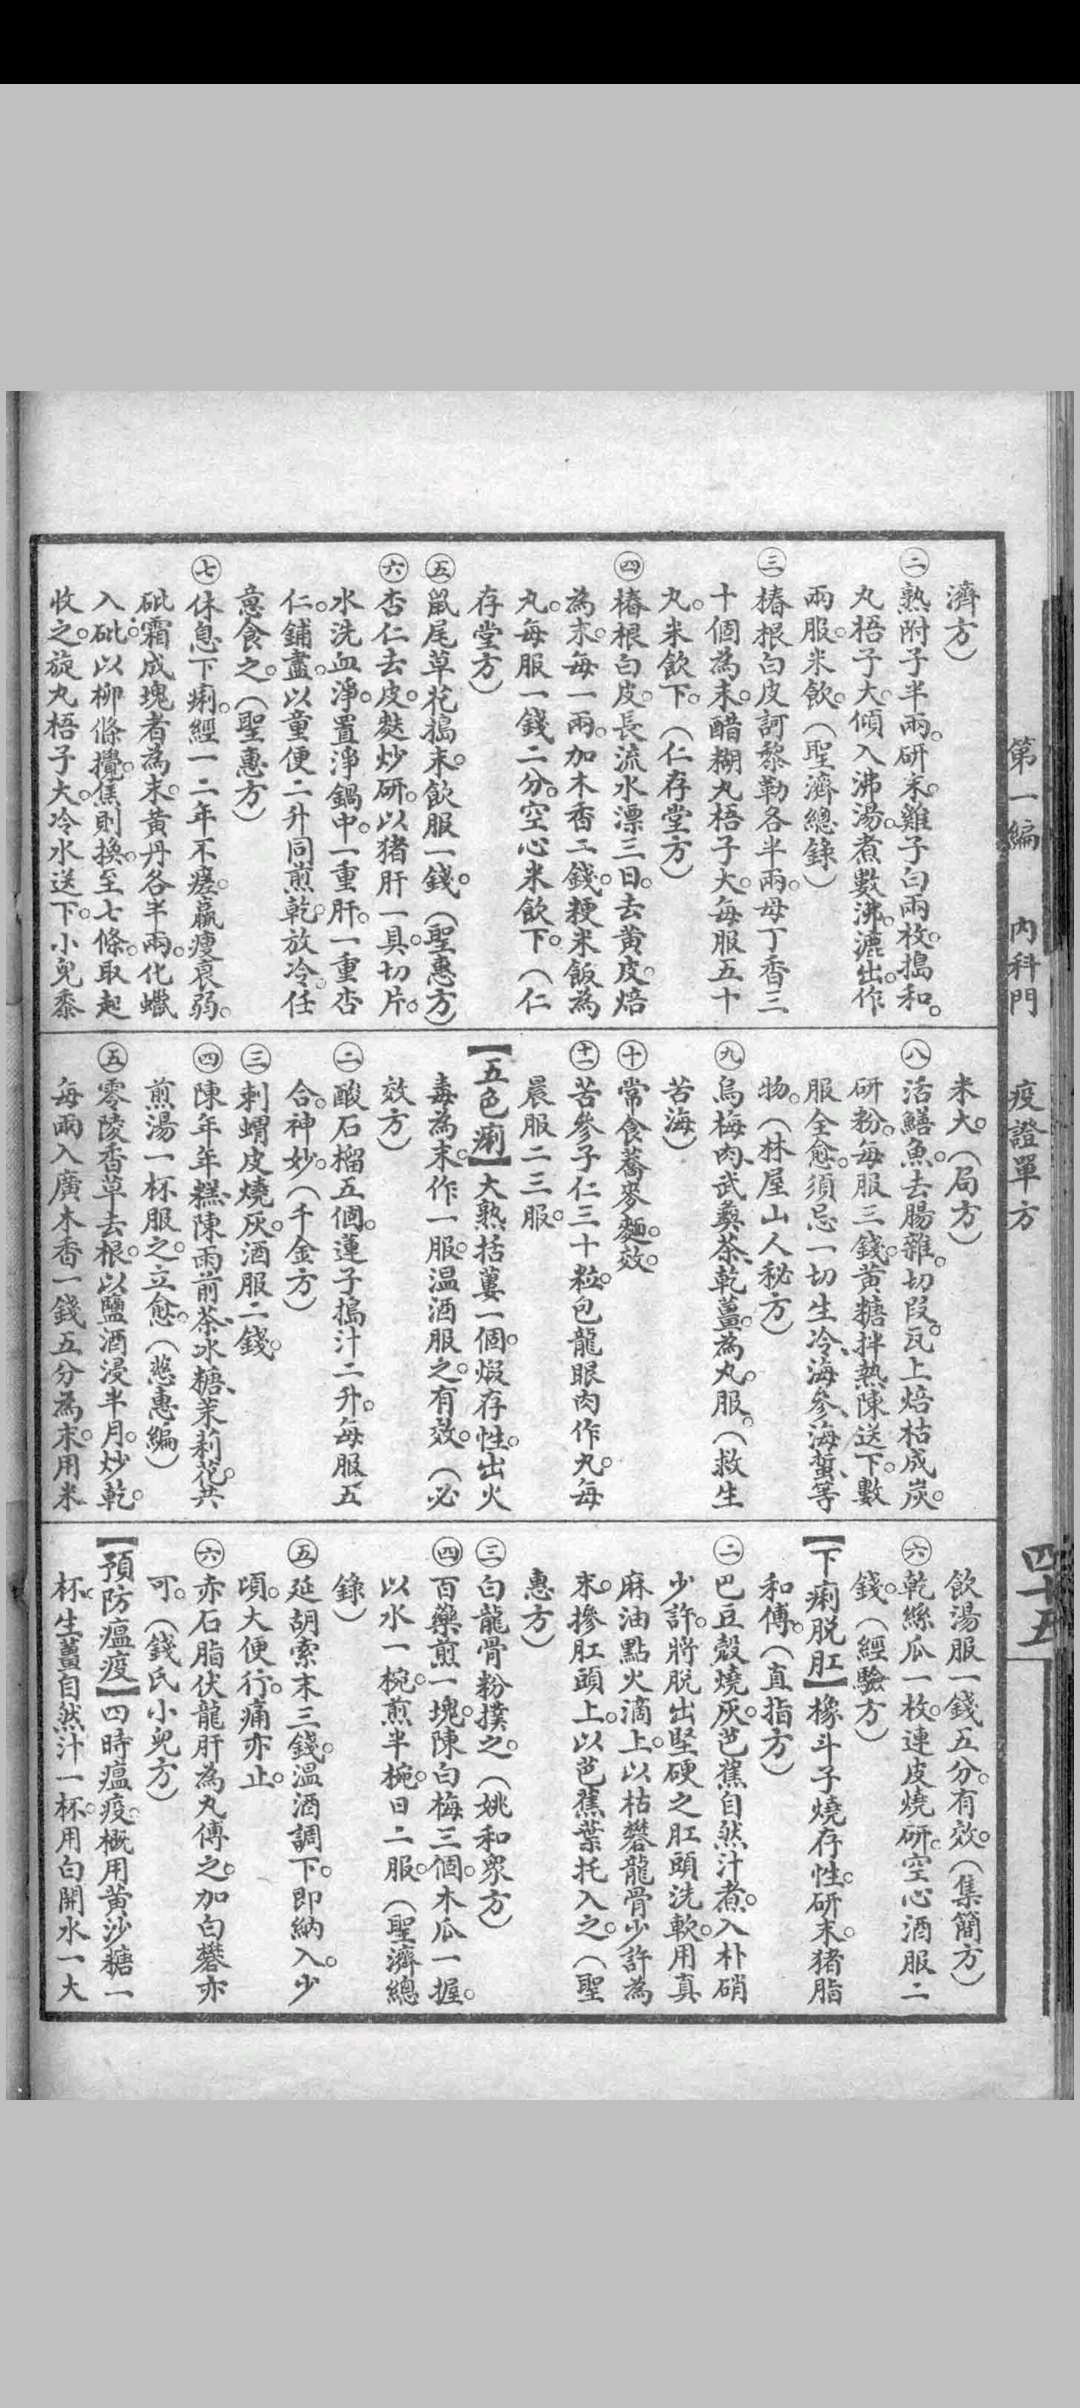 第一編　內科門　疫證單方　四十五
濟方）
㊁熟附子半兩。研末。雞子白兩枚。搗和。
丸梧子大。傾入沸湯。煮數沸。漉出。作
兩服。米飲。（聖濟總錄）
㊂椿根白皮訶黎勒各半兩。母丁香三
十個為末。醋糊丸梧子大。每服五十
丸。米飲下。（仁存堂方）
㊃椿根白皮。長流水漂三日。去黃皮。焙
為末。每一兩。加木香二錢。粳米飯為
丸。每服一錢二分。空心米飲下。（仁
存堂方）
㊄鼠尾草花搗末。飲服一錢。（聖惠方）
㊅杏仁去皮。麩炒研。以猪肝一具。切片。
水洗血淨。置淨鍋中。一重肝。一重杏
仁。鋪盡。以童便二升同煎乾。放冷。任
意食之。（聖惠方）
㊆休息下痢。經一二年不瘥。羸瘦衰弱。
砒霜成塊者為末。黃丹各半兩。化蠟
入砒。以柳條攪。焦則換。至七條。取起
收之。旋丸梧子大。冷水送下。小兒黍
米大。（局方）
㊇活鱔魚。去腸雜。切段。瓦上焙枯成炭。
研粉。每服三錢。黃糖拌熱陳送下。數
服全愈。須忌一切生冷、海參、海蜇、等
物。（林屋山人秘方）
㊈烏梅肉、武彝茶、乾薑。為丸。服。（救生
苦海）
㊉常食蕎麥麵。效。
十一苦參子仁三十粒。包龍眼肉作丸。每
晨服二三服。
【五色痢】大熟括蔞一個。煅存性。出火
毒為末。作一服。温酒服之。有效。（必
效方）
㊁酸石榴五個。蓮子搗汁二升。每服五
合。神妙。（千金方）
㊂刺蝟皮燒灰。酒服二錢。
㊃陳年年糕、陳雨前茶、冰糖、茉莉花。共
煎湯一杯服之。立愈。（慈惠編）
㊄零陵香草去根。以鹽酒浸半月。炒乾。
每兩入廣木香一錢五分為末。用米
飲湯服一錢五分。有效。（集簡方）
㊅乾絲瓜一枚。連皮燒研。空心酒服二
錢。（經驗方）
【下痢脱肛】橡斗子燒存性。研末。猪脂
和傅。（直指方）
㊁巴豆殼燒灰。芭蕉自然汁煮。入朴硝
少許。將脱出堅硬之肛頭洗軟。用真
麻油點火滴上。以枯礬龍骨少許為
末。摻肛頭上。以芭蕉葉托入之。（聖
惠方）
㊂白龍骨粉撲之。（姚和衆方）
㊃百藥煎一塊。陳白梅三個。木瓜一握。
以水一椀。煎半椀。日二服。（聖濟總
錄）
㊄延胡索末三錢。温酒調下。即納入。少
頃。大便行。痛亦止。
㊅赤石脂伏龍肝為丸傅之。加白礬亦
可。（錢氏小兒方）
【預防瘟疫】四時瘟疫。概用黃沙糖一
杯。生薑自然汁一杯。用白開水一大